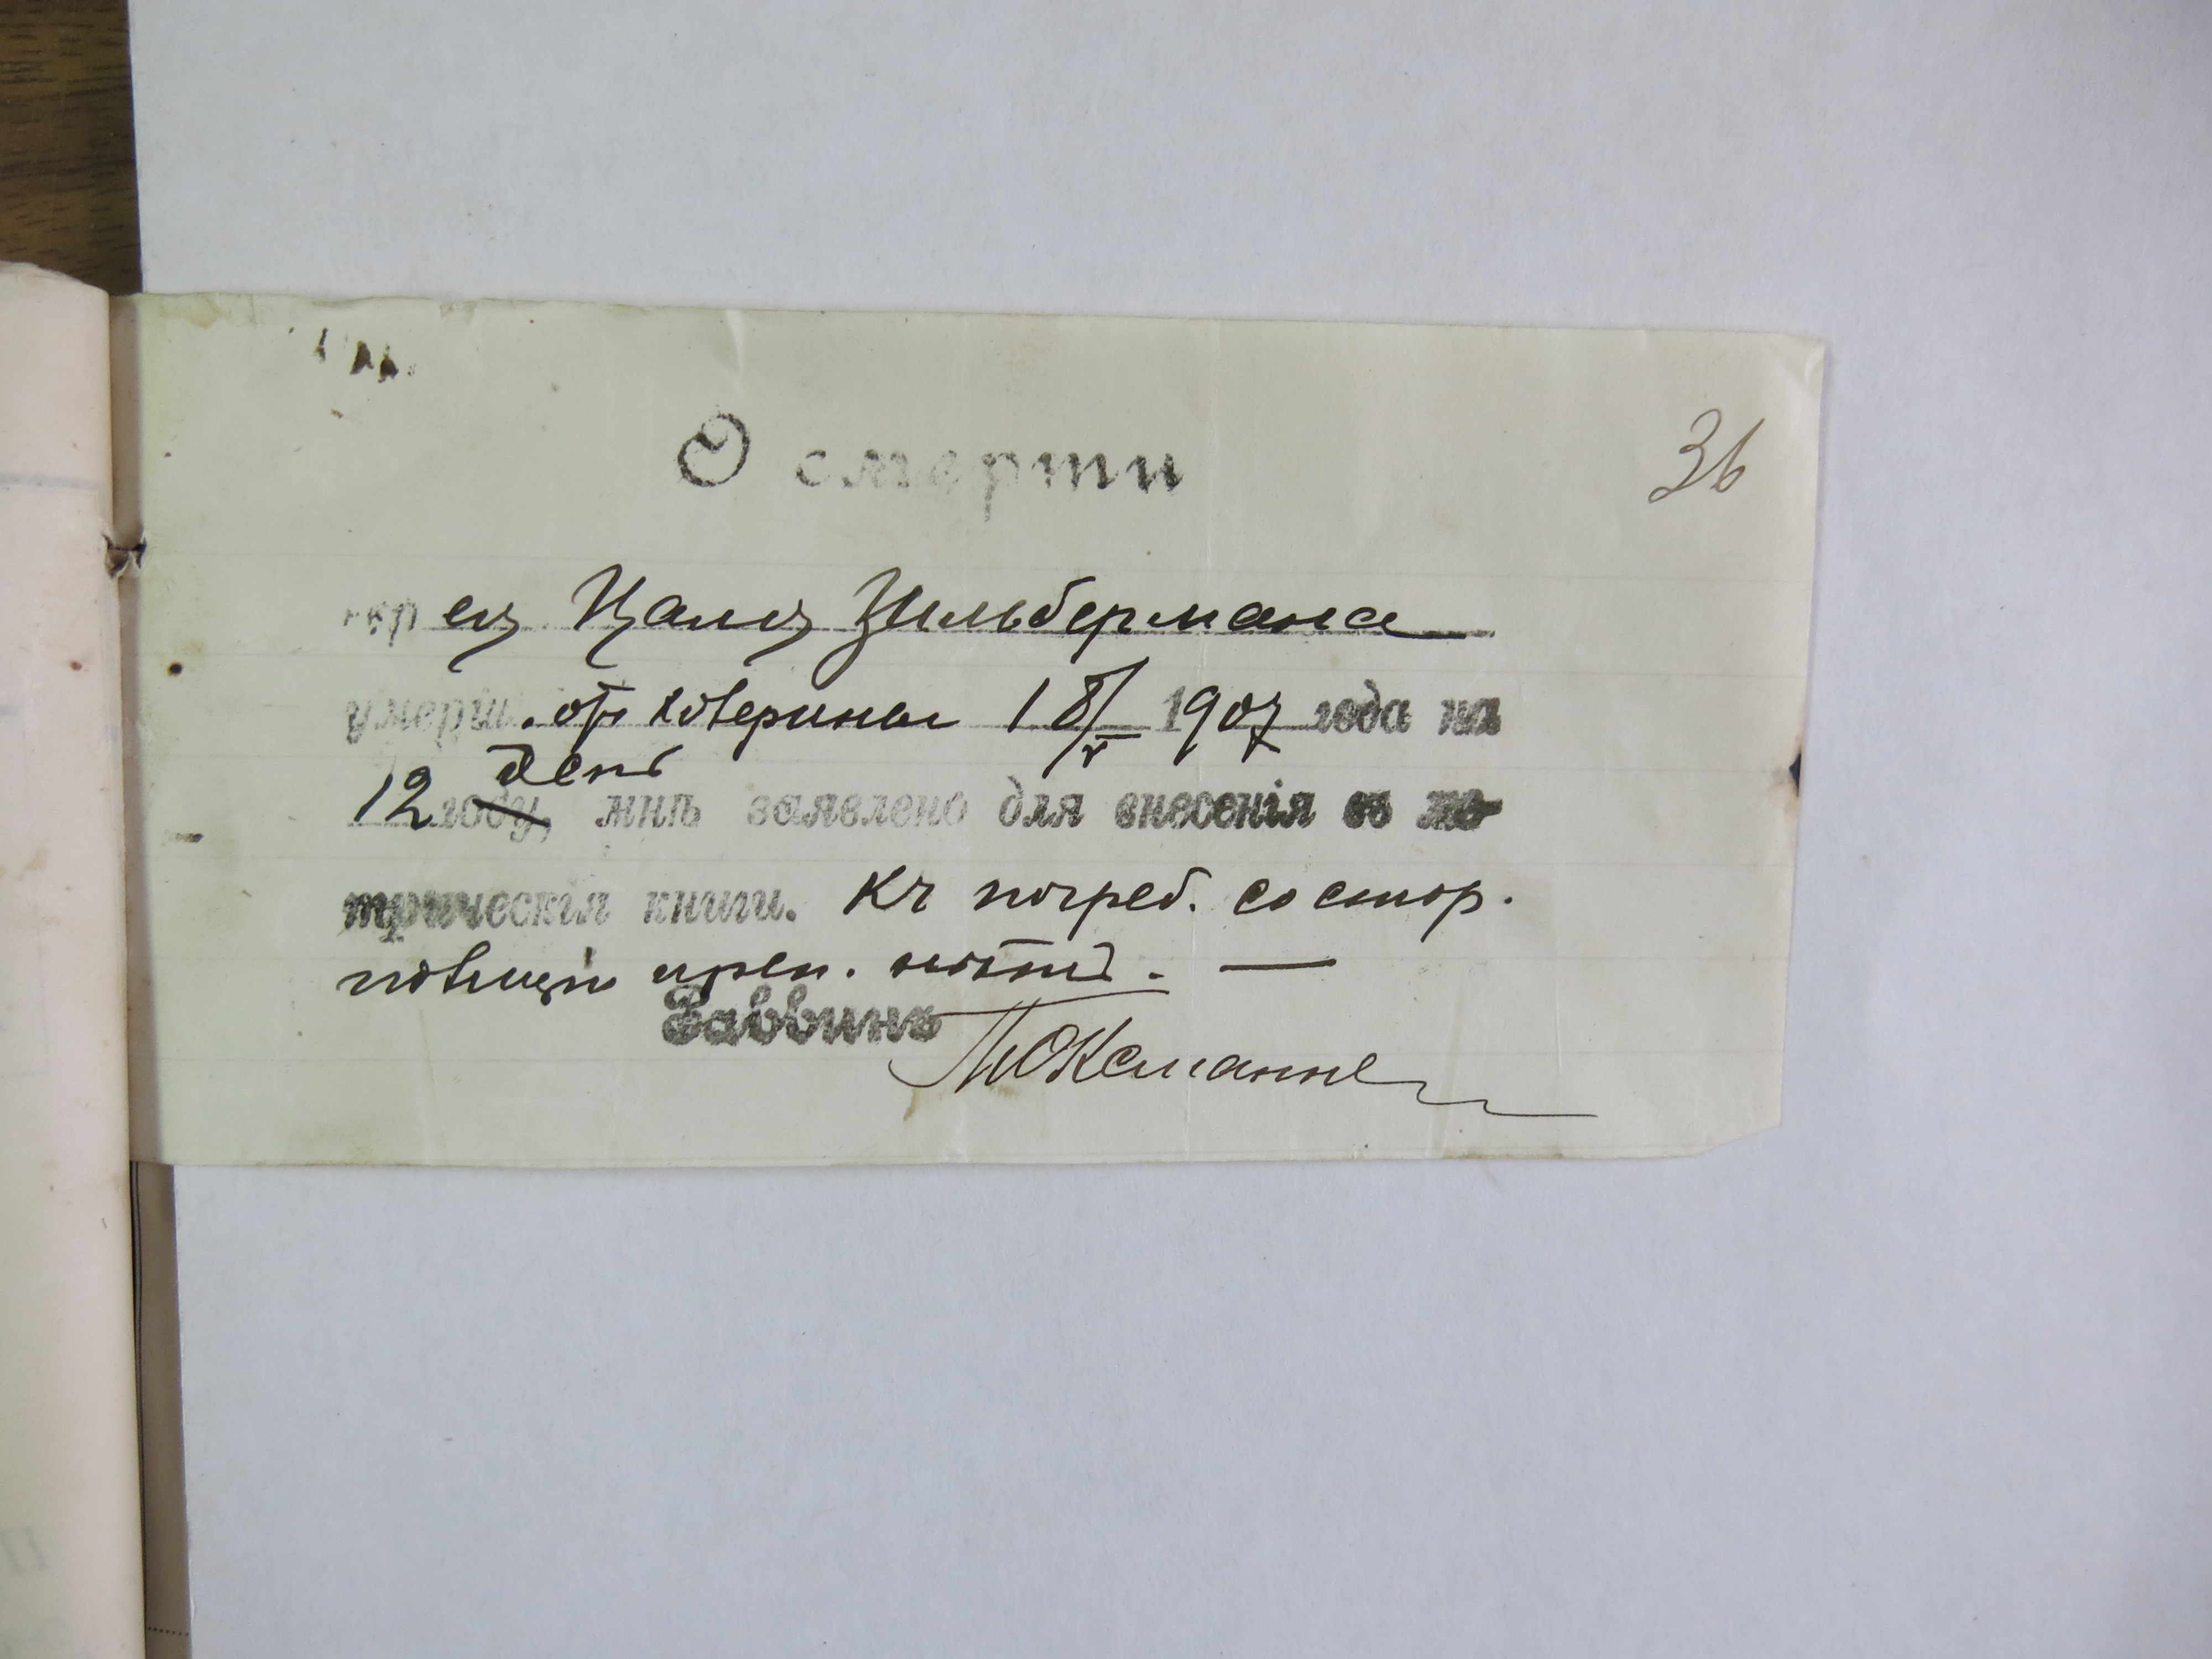 О смерти
36
евр ец Цалц Зильбермана
умерш. отъ 18/V 1907 года на
12 день году, мнѣ заявлено для внесенія въ ме
трическія книги. Къ погреб. со стор.
полиціи преп. нѣтъ. —
Раввинъ